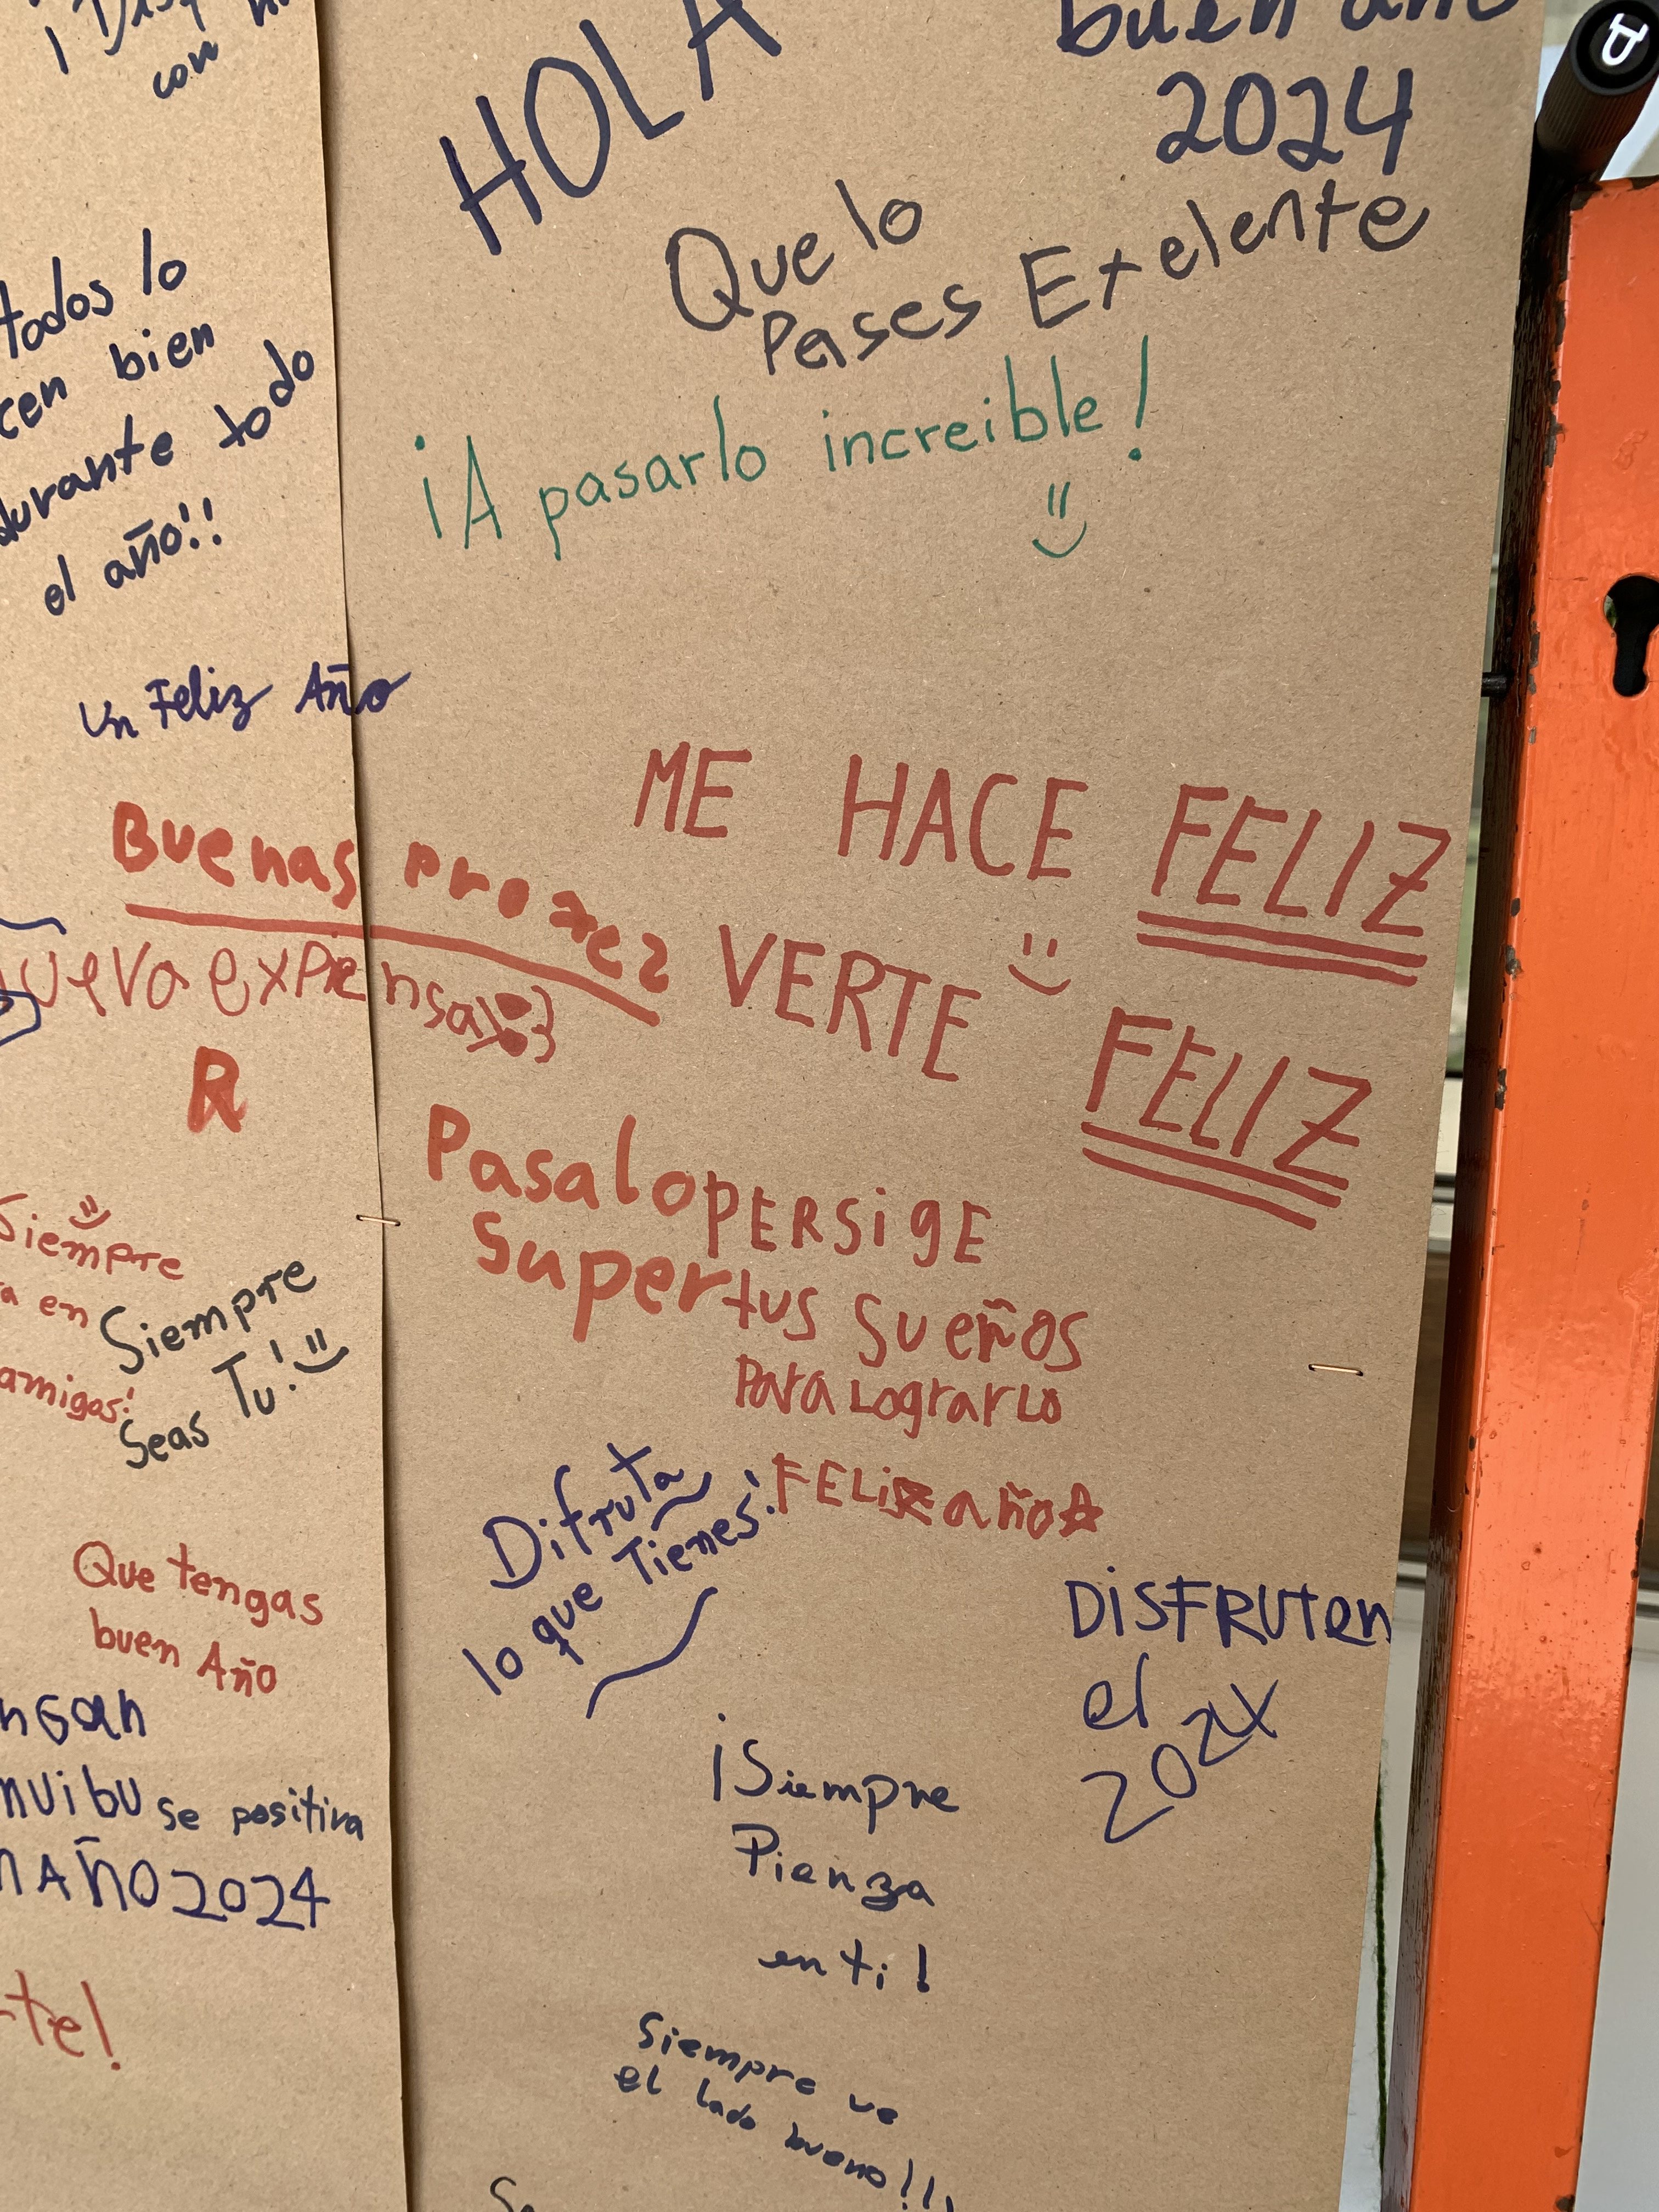 con
todos lo
cen bien
durante todo
el año!!
Un Feliz Año
Buenas
ueva expiensa
R
Siempre
a en
amigas!
Siempre
Seas Tu!
Que tengas
buen Año
ngan
nuibu
se positiva
n AÑO 2024
te!
HOLA
buen
2024
Que lo
Pases Exelente
¡A pasarlo increible!
ME HACE FELIZ
VERTE FELIZ
Pasalo
super
PERSigE
tus Sueños
Para Lograrlo
FELiz año
Difruta
lo que Tienes!
DiSFRUTen
el 2024
¡Siempre
Pienza
en ti!
Siempre ve
el lado bueno!!!